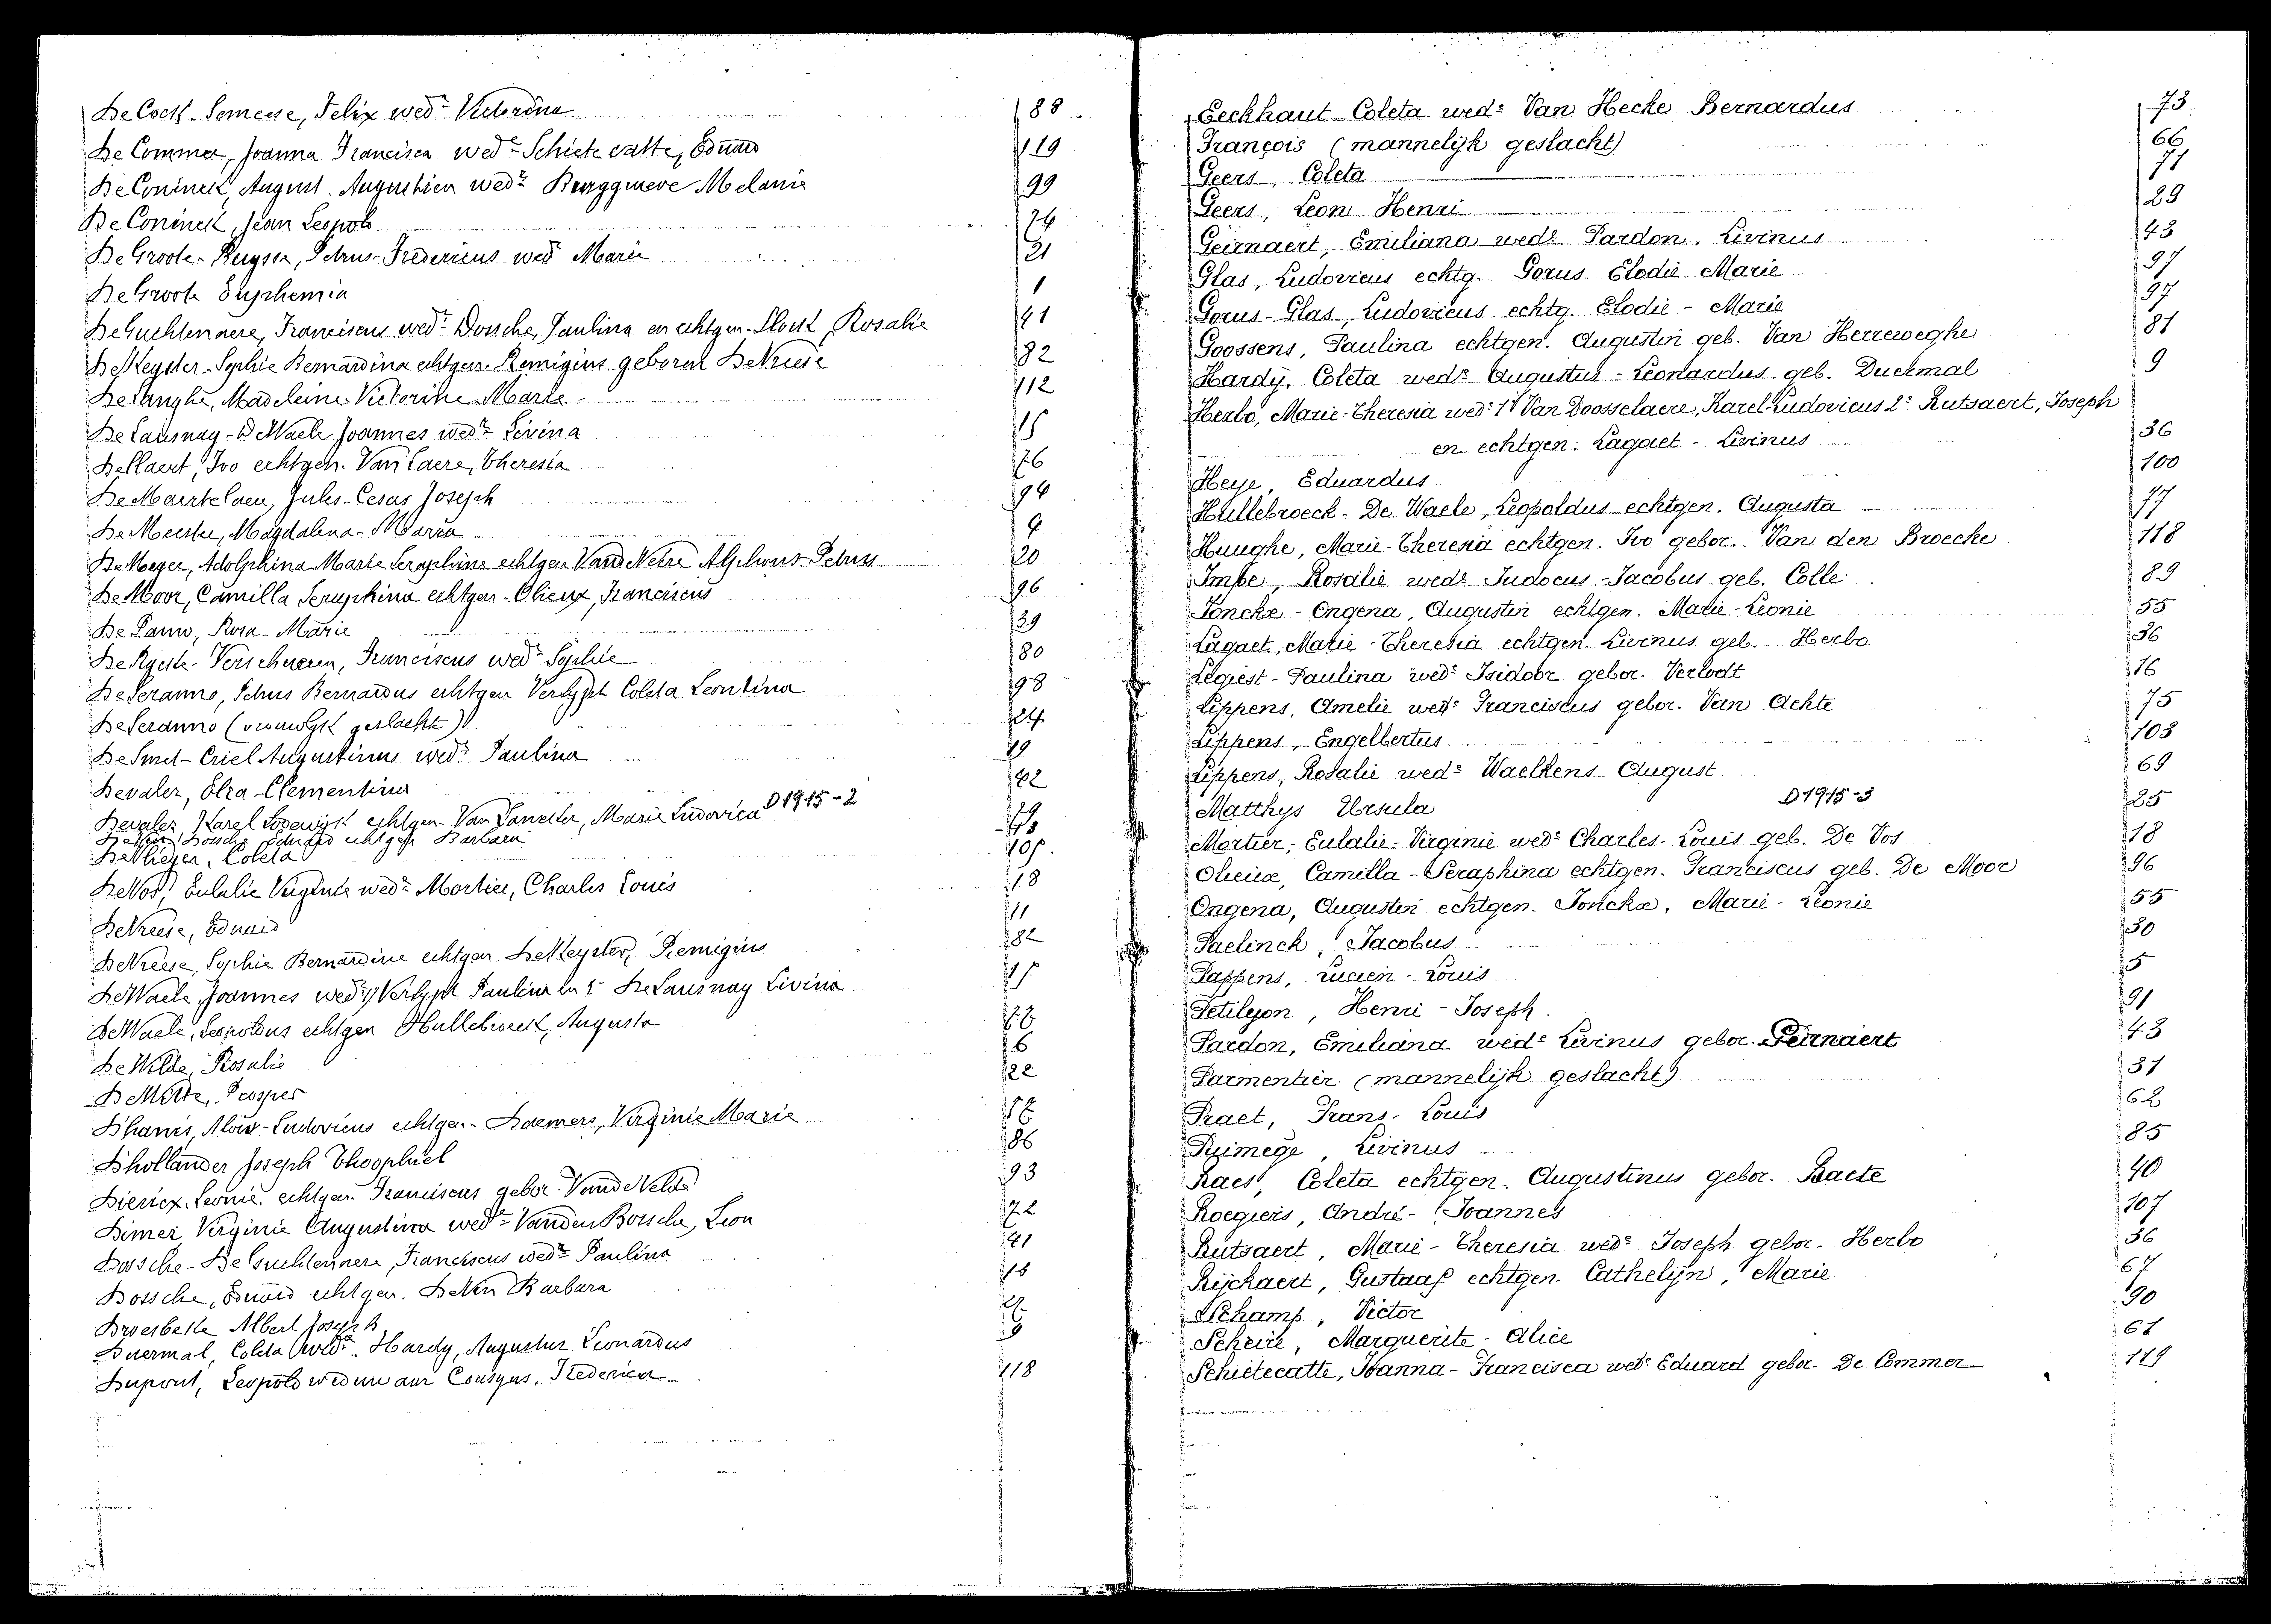 De Cock-Semeese, Felix wedr Victorina 88
De Commer, Joanna Francisca wede Schietecatte, Eduard 119
De Coninck, August. Augustien wedr Burggraeve Melanie 99
De Coninck, Jean Leopold 74
De Groote-Ruysse, Petrus-Fredericus wedr Marie 21
De Groote Euphemia 1
De Guchtenaere, Franciscus wedr Dossche, Paulina en echtgen. Slock, Rosalie 41
De Keyster-Sophie Bernardina echtgen. Remigius geboren De Vreese 82
De Langhe, Madeleine Victorine Marie 112
De Lausnay-De Waele Joannes wedr Livina 15
De Maert, Ivo echtgen. Van Laere, Theresia 76
De Maertelaere, Jules-Cesar Joseph 94
De Meester, Magdalena-Maria 4
De Meyer, Adolphina-Marie Seraphine echtgen Van de Neire Alphons-Petrus 20
De Moor, Camilla Seraphina echtgen-Olieux, Franciscus 96
De Pauw, Rosa-Marie 39
De Rycke-Verschueren, Franciscus wedr Sophie 80
De Seranno, Petrus Bernardus echtgen Verlypt Coleta Leontina 98
De Seranno (vrouwlyk geslacht) 24
De Smet-Criel Augustinus wedr Paulina 19
Devaler, Elza-Clementina 42
Devaler, Karel Lodewijk echtgen-Van Lancker, Marie Ludovica D1915-2 79
De Vin Dossche Eduard echtgen Barbara 18
De Vlieger, Coleta 105.
De Vos, Eulalie Virginie wede Mortier, Charles Louis 18
De Vreese, Eduard 11
De Vreese, Sophie Bernardine echtgen De Keyster, Remigius 82
De Waele, Joannes wedr 1) Verlypt Paulina en 2 De Lausnay Livina 15
De Waele, Leopoldus echtgen Hullebroeck, Augusta 77
De Wilde, Rosalie 6
De Witte, Prosper 22
D'hanis, Alois-Ludovicus echtgen-Daemers, Virginie Marie 57
D'hollander Joseph Theophiel 86
Diericx, Leonie echtgen. Franciscus gebor. Van de Velde 93
Dimei, Virginie Augustina wede Vanden Bossche, Leon 72
Dossche-De Guchtenaere, Franciscus wedr Paulina 41
Dossche, Eduard echtgen. De Vin Barbara 18
Droesbeke Albert Joseph 27
Duermal, Coleta wede Hardy, Augustus Leonardus 9
Dupont, Leopold weduwnaar Cousyns, Frederica 118
Eeckhaut Coleta wede Van Hecke Bernardus 73
François (mannelijk geslacht) 66
Geers, Coleta 71
Geers, Leon Henri 29
Geirnaert, Emiliana wede Pardon, Livinus 43
Glas, Ludovicus echtg. Gorus Elodie Marie 97
Gorus-Glas, Ludovicus echtg. Elodie-Marie 97
Goossens, Paulina echtgen. Augustin geb. Van Herreweghe 81
Hardy, Coleta wede Augustus-Leonardus geb. Duermal 9
Herbo, Marie-Theresia wede 1e Van Doosselaere, Karel-Ludovicus 2e Rutsaert, Joseph
en echtgen: Lagaet-Livinus 36
Heye, Eduardus 100
Hullebroeck-De Waele, Leopoldus echtgen. Augusta 77
Huughe, Marie-Theresia echtgen. Ivo gebor. Van den Broecke 118
Impe, Rosalie wede Judocus-Jacobus geb. Colle 89
Jonckx-Ongena, Augustin echtgen. Marie-Leonie 55
Lagaet, Marie-Theresia echtgen. Livinus geb. Herbo 36
Legiest-Paulina wede Isidoor gebor. Verlodt 16
Lippens, Amelie wede Franciscus gebor. Van Achte 75
Lippens, Engelbertus 103
Lippens, Rosalie wede Waelkens August 69
Matthys Ursula D1915-3 25
Mortier, Eulalie-Virginie wede Charles-Louis geb. De Vos 18
Olieux, Camilla-Seraphina echtgen. Franciscus geb. De Moor 96
Ongena, Augustin echtgen. Jonckx, Marie-Leonie 55
Paelinck, Jacobus 30
Pappens, Lucien-Louis 5
Petilyon, Henri-Joseph. 91
Pardon, Emiliana wede Livinus gebor. Geirnaert 43
Parmentier (mannelijk geslacht) 31
Praet, Frans-Louis 62
Puimege, Livinus 85
Raes, Coleta echtgen. Augustinus gebor. Baete 40
Roegiers, André-Joannes 107
Rutsaert, Marie-Theresia wede Joseph gebor. Herbo 36
Rijckaert, Gustaaf echtgen. Cathelijn, Marie 67
Schamp, Victor 90
Scheire, Marguerite-Alice 61
Schietecatte, Joanna-Francisca wede Eduard gebor. De Commer 119